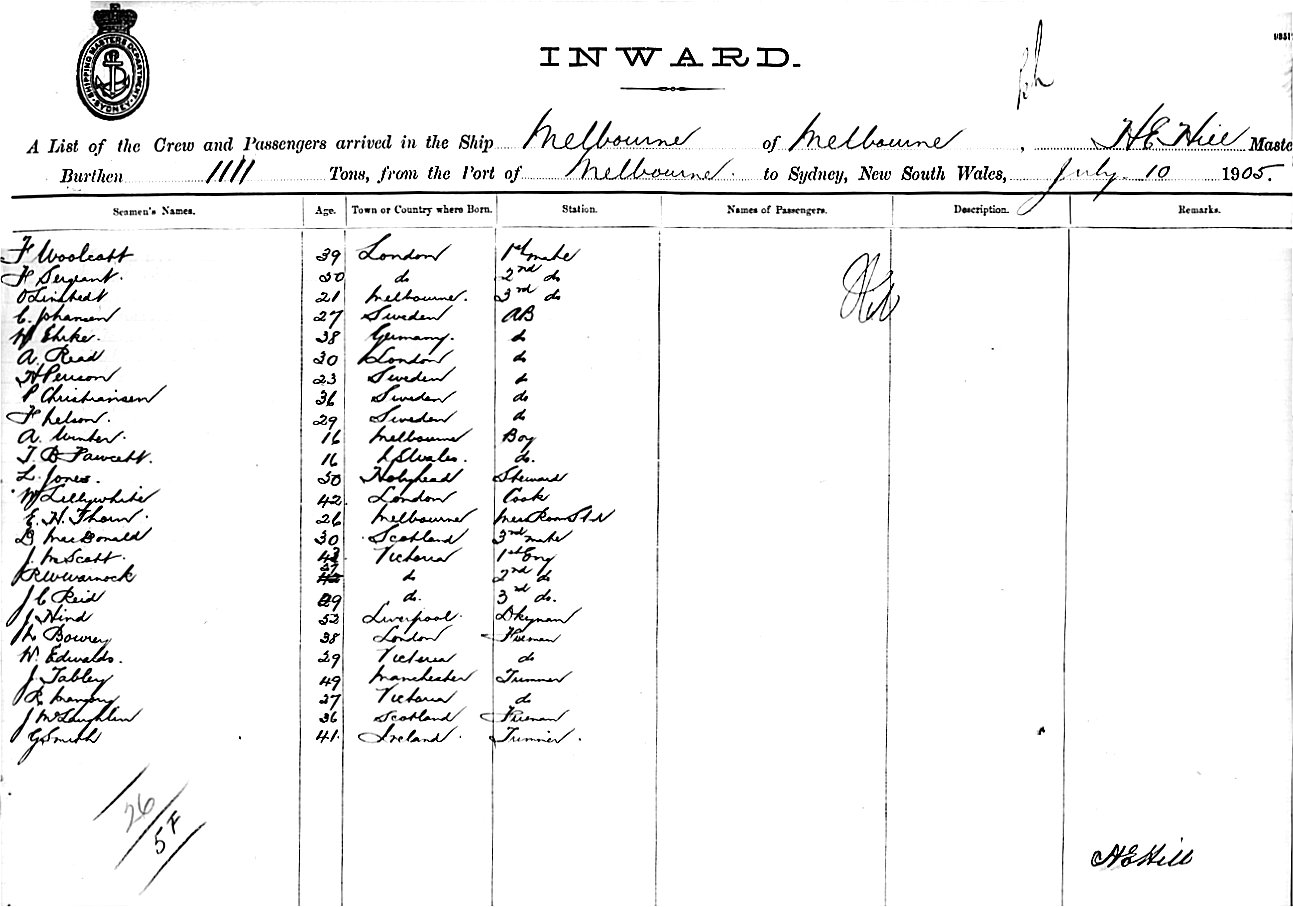 SHIPPING MASTERS DEPARTMENT
SYDNEY
INWARD.
A List of the Crew and Passengers arrived in the Ship Melbourne of Melbourne, H E Hill Maste
Burthen 1111 Tons, from the Port of Melbourne. to Sydney, New South Wales, July 10 1905.
Seamen's Names. Age. Town or Country where Born. Station. Names of Passengers. Description. Remarks.
F Woolcott 39 London 1st mate
F Sergeant. 30 do 2nd do
O Linstedt 21 Melbourne. 3rd do
C. Johansen 27 Sweden AB
W Ehrke. 38 Germany. do
A. Read 30 London do
H Person 23 Sweden do
P Christiansen 36 Sweden do
F Nelson. 29 Sweden do
A. Winter. 16 Melbourne Boy
T. B Fawcett. 16 N S Wales. do.
L. Jones. 50 Holyhead Steward
W Lillywhite 42 London Cook
E. H. Thorn. 26 Melbourne Mess Room Std
D MacDonald 30 Scotland 3rd mate
J. M Scott. 43 Victoria 1st Eng
R W Warnock 37 do 2nd do
J C Reid 29 do. 3rd do.
J Hind 52 Liverpool. Dkyman
Bowrey 38 London Fireman
W. Edwalds. 29 Victoria do
J. Tabley 49 Manchester Trimmer
R 27 Victoria do
J McLaughlin 36 Scotland Fireman
G Smith 41. Ireland. Trimmer.
26
5F
H E Hill